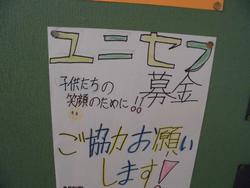 ユニセフ
募金
子供たちの
笑顔のために!!
ご協力お願い
します!